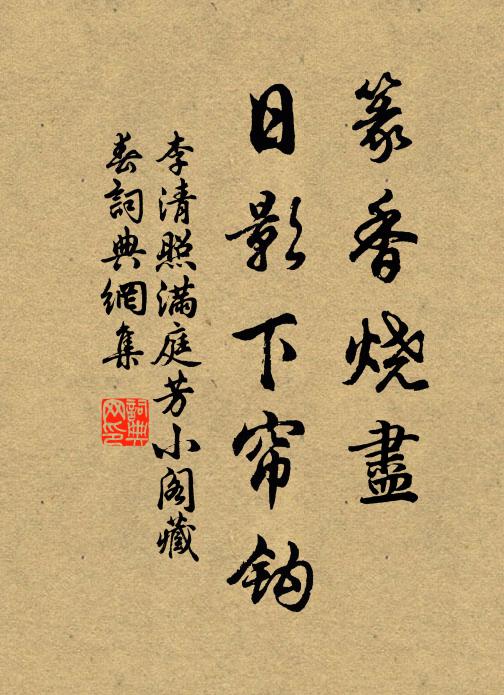 篆香烧盡
日影下帘钩
李清照满庭芳小阁藏
春詞典網集
詞典网印